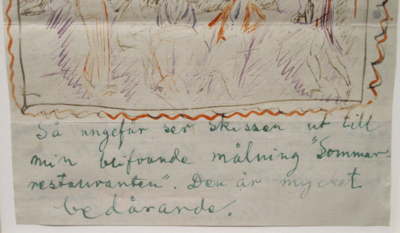 Så ungefär ser skissen ut till
min blifvande målning "Sommar
restauranten". Den är mycket
bedårande.